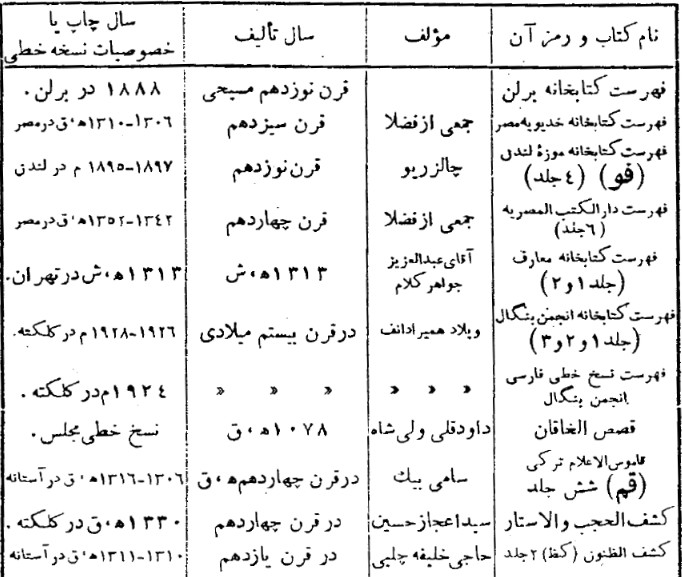 نام کتاب و رمز آن	مؤلف	سال تألیف	سال چاپ یا خصوصیات نسخه خطی
فهرست کتابخانه برلن		قرن نوزدهم مسیحی	۱۸۸۸ در برلن .
فهرست کتابخانه خدیویه مصر	جمعی از فضلا	قرن سیزدهم	۱۳۰۶-۱۳۱۰ ه‍ ، ق در مصر
فهرست کتابخانه موزهٔ لندن (فو) (٤ جلد)	چالز ریو	قرن نوزدهم	۱۸۹۵-۱۸۹۷ م در لندن
فهرست دارالکتب المصریه (٦ جلد)	جمعی از فضلا	قرن چهاردهم	۱۳٤۲-۱۳۵۲ ه‍ ، ق در مصر
فهرست کتابخانه معارف (جلد ۱ و ۲)	آقای عبدالعزیز جواهر کلام	۱۳۱۳ ه‍ ، ش	۱۳۱۳ ه‍ ، ش در تهران .
فهرست کتابخانه انجمن بنگال (جلد ۱ و ۲ و ۳)	ویلاد همیر ادانف	در قرن بیستم میلادی	۱۹۲٦-۱۹۲۸ م در کلکته .
فهرست نسخ خطی فارسی انجمن بنگال	» » »	» » »	۱۹۲٤ م در کلکته .
قصص الخاقان	داود قلی ولی شاه	۱۰۷۸ ه‍ ، ق	نسخ خطی مجلس .
قاموس الاعلام ترکی (قم) شش جلد	سامی بیك	در قرن چهاردهم ه‍ ، ق	۱۳۰٦-۱۳۱٦ ه‍ ، ق در آستانه
کشف الحجب والاستار	سید اعجاز حسین	در قرن چهاردهم	۱۳۳۰ ه‍ ، ق در کلکته .
کشف الظنون (کظ) ۲ جلد	حاجی خلیفه چلبی	در قرن یازدهم	۱۳۱۰-۱۳۱۱ ه‍ ، ق در آستانه